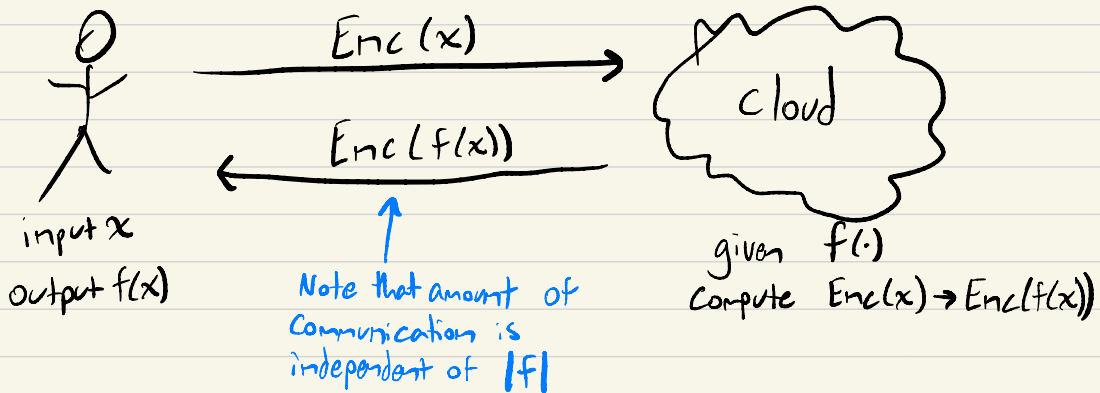 Enc(x)
cloud
Enc(f(x))
input x
output f(x)
Note that amount of
communication is
independent of |f|
given f(·)
compute Enc(x) → Enc(f(x))